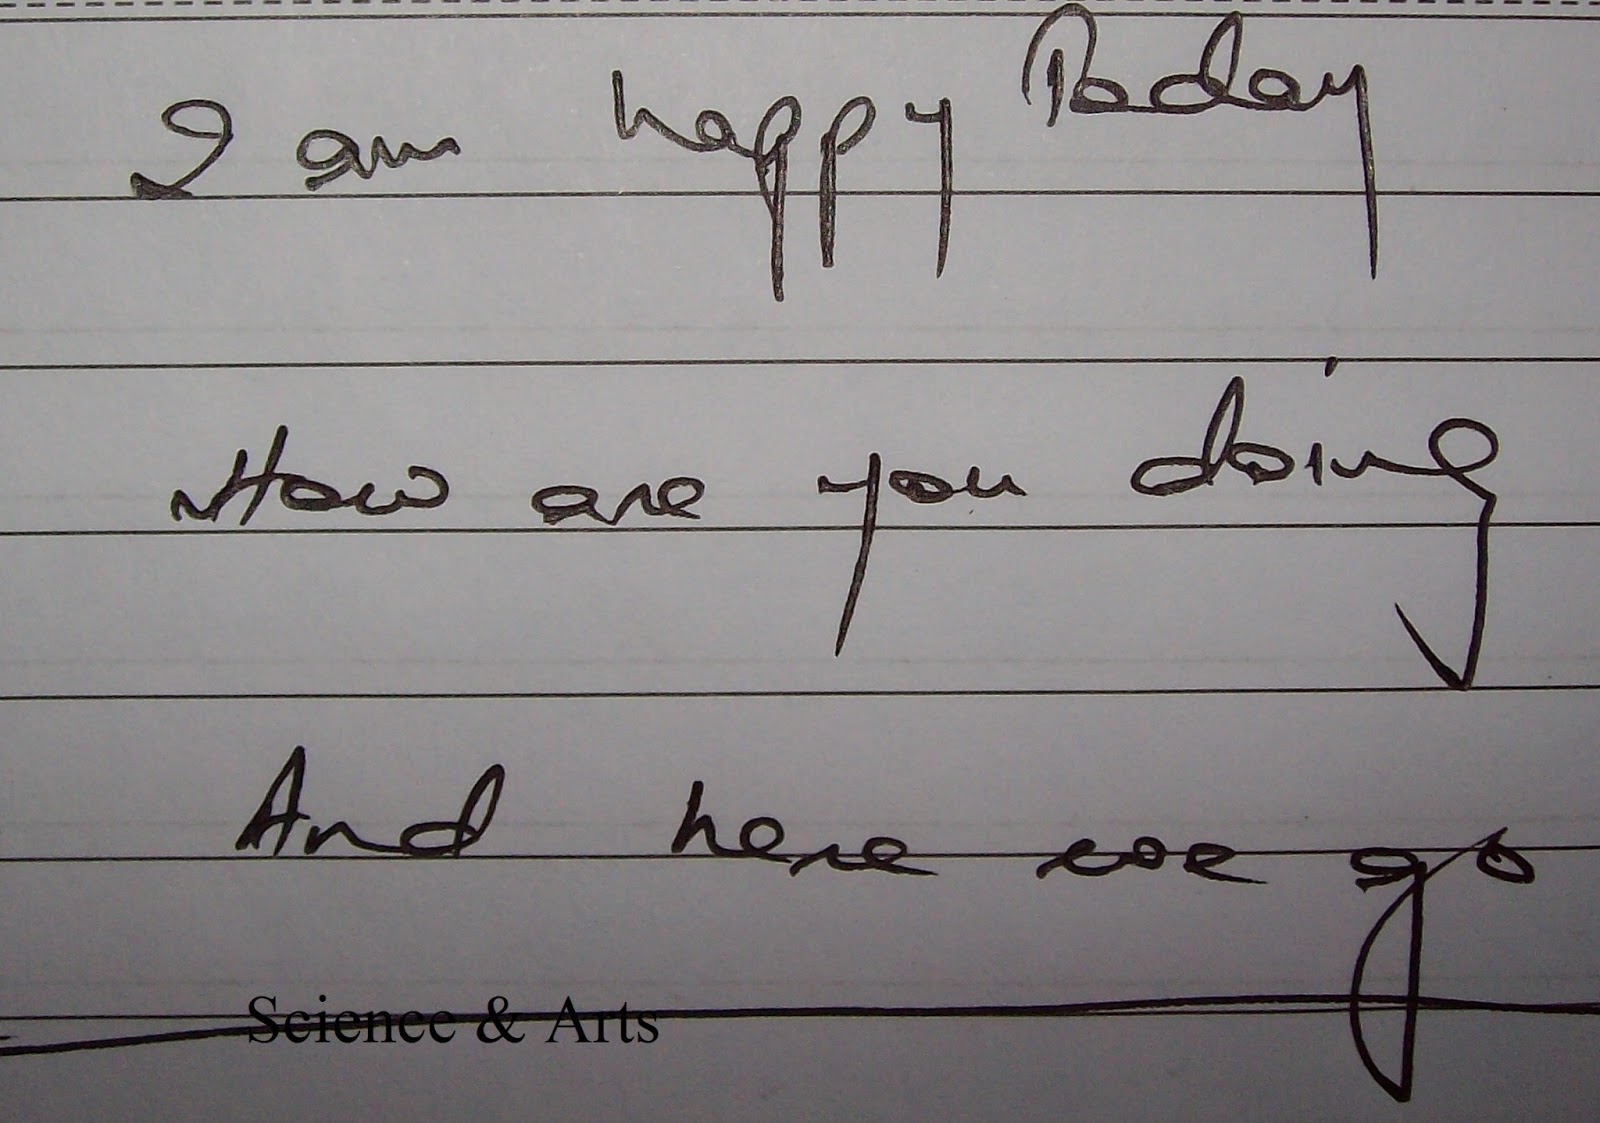 I am happy Today
How are you doing
And here we go
Science & Arts